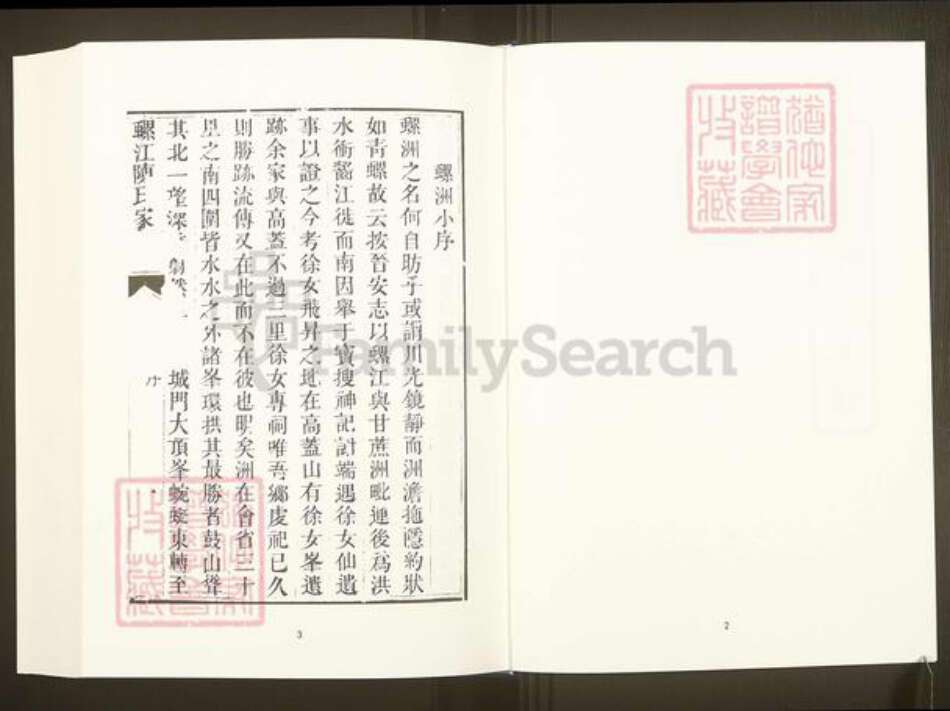 猶他家
譜學會
收藏
2
螺洲小序
螺洲之名何自昉乎或謂川光鏡靜而洲澹拖隱約狀
如青螺故云按晉安志以螺江與甘蔗洲毗連後為洪
水衝齧江徙而南因舉干寶搜神記謝端遇徐女仙遺
事以證之今考徐女飛昇之地在高蓋山有徐女峯遺
跡余家與高蓋不過二里徐女專祠唯吾鄉虔祀已久
則勝跡流傳又在此而不在彼也明矣洲在會省三十
里之南四圍皆水水之外諸峯環拱其最勝者鼓山聳
其北一望深 城門大頂峯蜿蜒東轉至
螺江陳氏家
3
FamilySearch